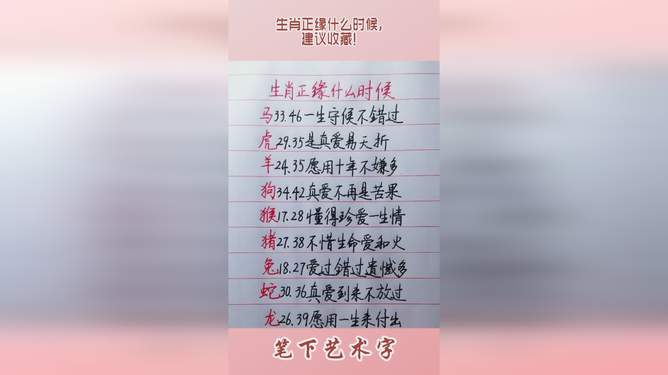 生肖正缘什么时候,
建议收藏!
生肖正缘什么时候
马33.46一生守候不错过
虎29.35是真爱易夭折
羊24.35愿用十年不嫌多
狗34.42真爱不再是苦果
猴17.28懂得珍爱一生情
猪27.38不惜生命爱和火
兔18.27爱过错过遗憾多
蛇30.36真爱到来不放过
龙26.39愿用一生来付出
笔下艺术字